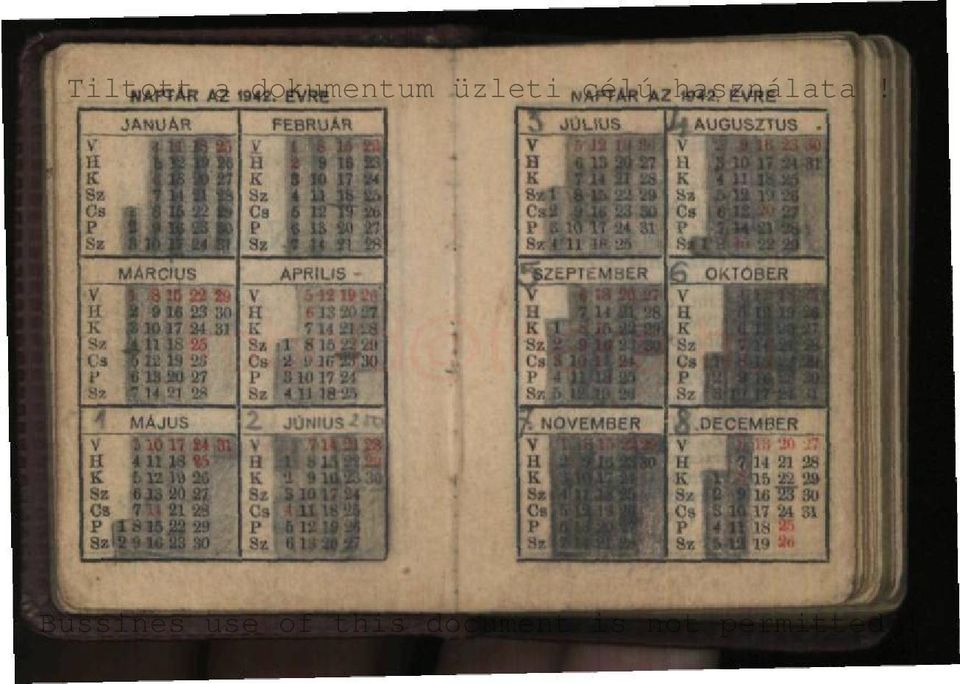 Tiltott a dokumentum üzleti célú használata !
NAPTÁR AZ 1942. ÉVRE
JANUÁR FEBRUÁR
V 4 11 18 25 V 1 8 15 22
H 5 12 19 26 H 2 9 16 23
K 6 13 20 27 K 3 10 17 24
Sz 7 14 21 28 Sz 4 11 18 25
Cs 1 8 15 22 29 Cs 5 12 19 26
P 2 9 16 23 30 P 6 13 20 27
Sz 3 10 17 24 31 Sz 7 14 21 28
MÁRCIUS ÁPRILIS
V 1 8 15 22 29 V 5 12 19 26
H 2 9 16 23 30 H 6 13 20 27
K 3 10 17 24 31 K 7 14 21 28
Sz 4 11 18 25 Sz 1 8 15 22 29
Cs 5 12 19 26 Cs 2 9 16 23 30
P 6 13 20 27 P 3 10 17 24
Sz 7 14 21 28 Sz 4 11 18 25
1 MÁJUS 2 JÚNIUS
V 3 10 17 24 31 V 7 14 21 28
H 4 11 18 25 H 1 8 15 22 29
K 5 12 19 26 K 2 9 16 23 30
Sz 6 13 20 27 Sz 3 10 17 24
Cs 7 14 21 28 Cs 4 11 18 25
P 1 8 15 22 29 P 5 12 19 26
Sz 2 9 16 23 30 Sz 6 13 20 27
NAPTÁR AZ 1942. ÉVRE
3 JÚLIUS 4 AUGUSZTUS
V 5 12 19 26 V 2 9 16 23 30
H 6 13 20 27 H 3 10 17 24 31
K 7 14 21 28 K 4 11 18 25
Sz 1 8 15 22 29 Sz 5 12 19 26
Cs 2 9 16 23 30 Cs 6 13 20 27
P 3 10 17 24 31 P 7 14 21 28
Sz 4 11 18 25 Sz 1 8 15 22 29
5 SZEPTEMBER 6 OKTÓBER
V 6 13 20 27 V 4 11 18 25
H 7 14 21 28 H 5 12 19 26
K 1 8 15 22 29 K 6 13 20 27
Sz 2 9 16 23 30 Sz 7 14 21 28
Cs 3 10 17 24 Cs 1 8 15 22 29
P 4 11 18 25 P 2 9 16 23 30
Sz 5 12 19 26 Sz 3 10 17 24 31
7 NOVEMBER 8 DECEMBER
V 1 8 15 22 29 V 6 13 20 27
H 2 9 16 23 30 H 7 14 21 28
K 3 10 17 24 K 1 8 15 22 29
Sz 4 11 18 25 Sz 2 9 16 23 30
Cs 5 12 19 26 Cs 3 10 17 24 31
P 6 13 20 27 P 4 11 18 25
Sz 7 14 21 28 Sz 5 12 19 26
Bussines use of this document is not permitted !